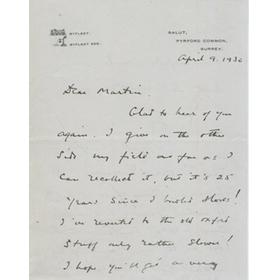 BYFLEET.
BYFLEET 200.
SALUT,
PYRFORD COMMON,
SURREY.
April 9. 1930
Dear Martin
Glad to hear of you
again. I give on the other
side my field as far as I
can recollect it, but it's 25
years since I bowled slows!
I've reverted to the old Oxford
stuff only rather slower!
I hope you'll get a very